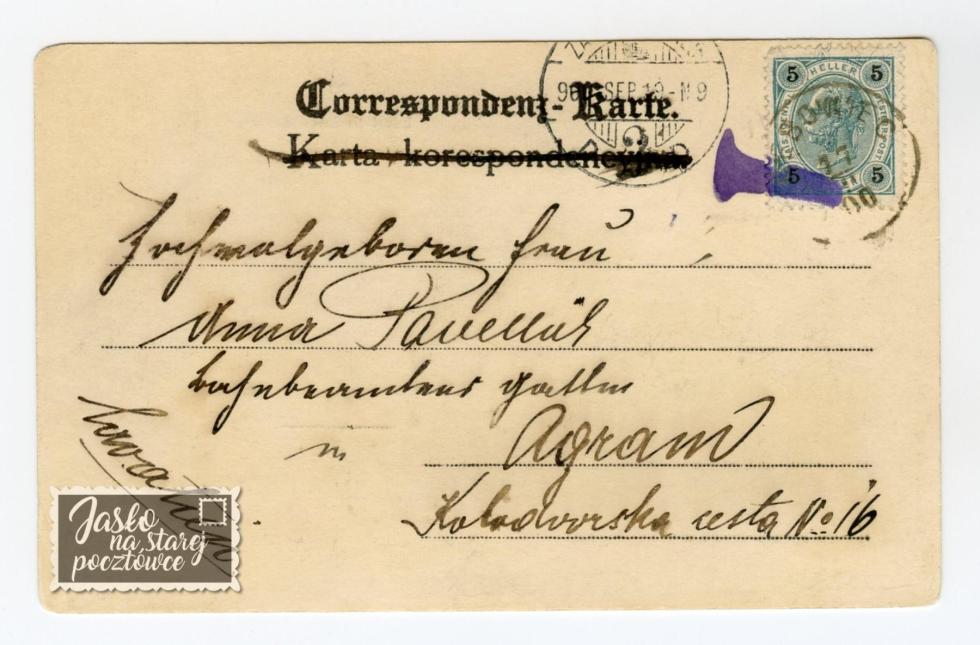 Correspondenz-Karte.
Karta korespondencyjna.
900 SEP 19-N9
2
5 HELLER 5
5 5
17
00
Hochwolgeboren Frau
Anna Pavellić
Bahnbeamtens Gattin
in Agram
Kolodvorska cesta No 16
Jasło
na starej
pocztówce